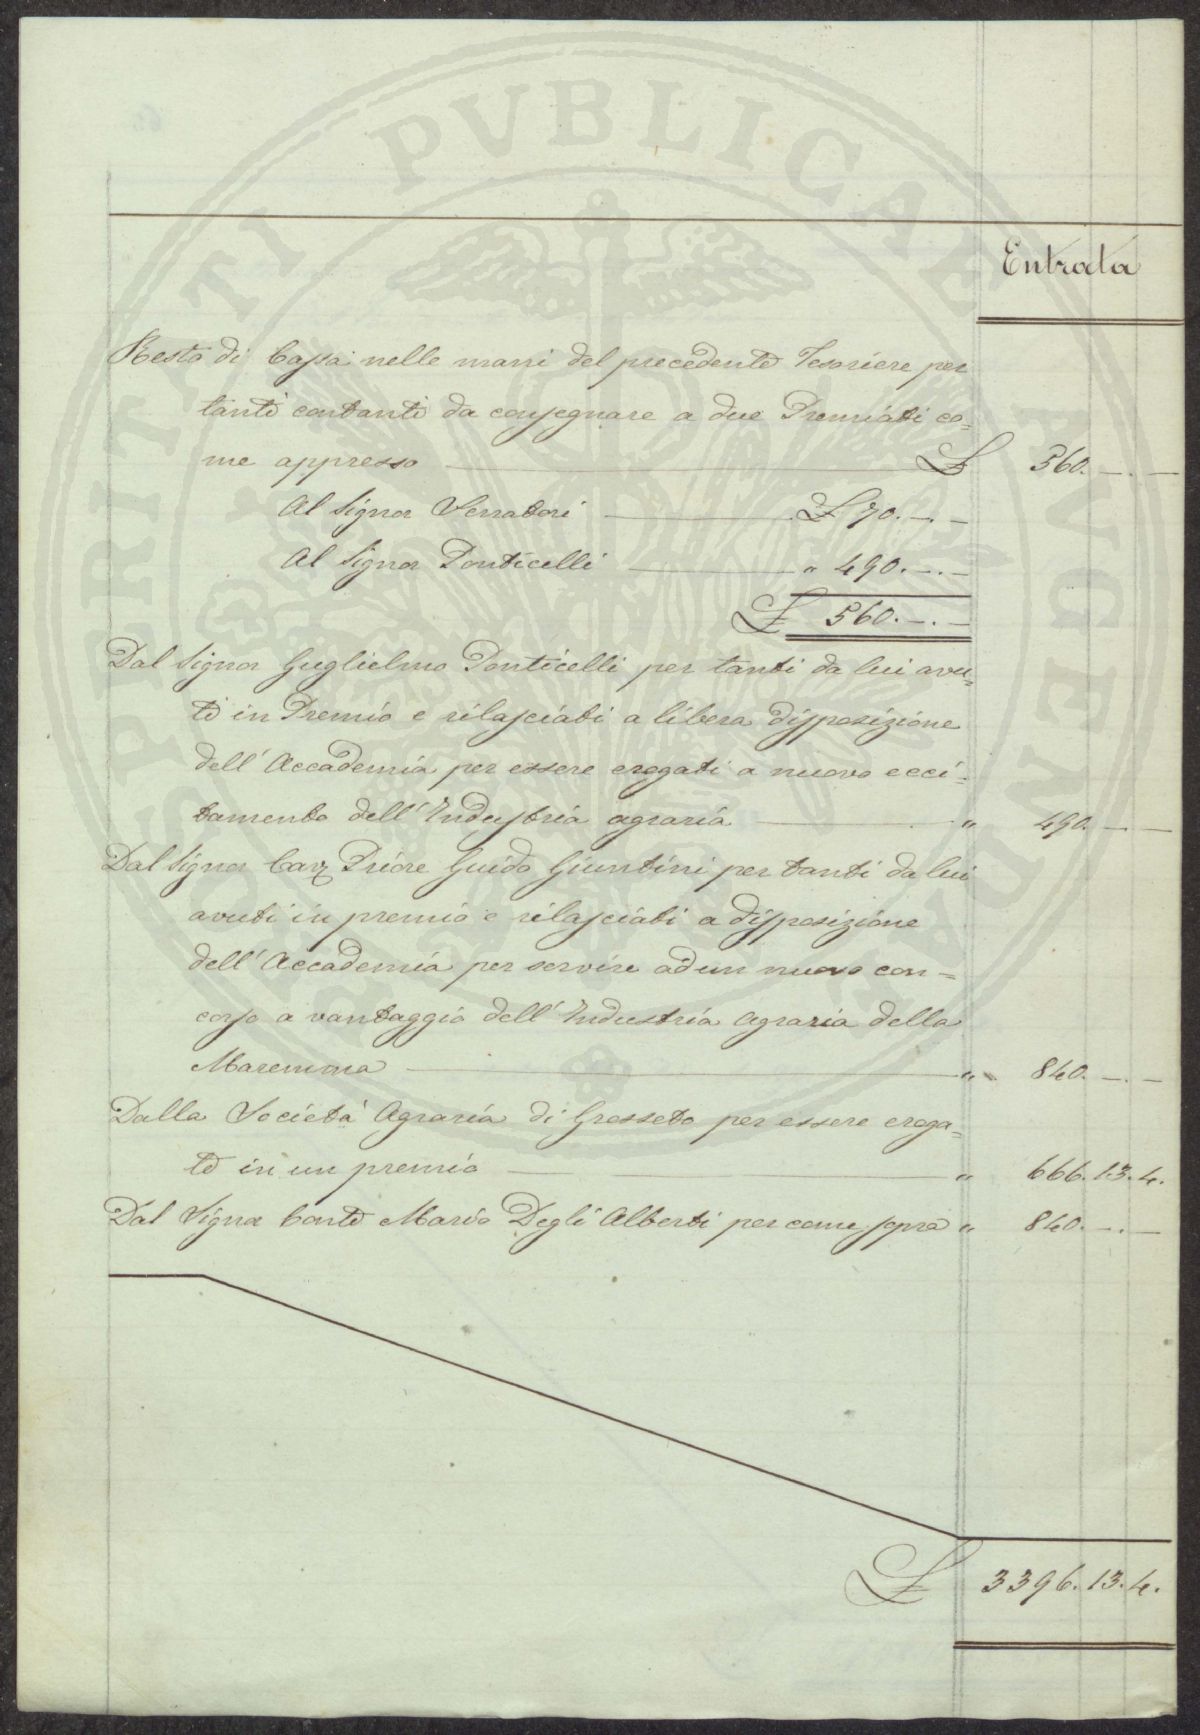 PROSPERITATI PVBLICAE AVGENDAE
Entrata
Resto di Cassa nelle mani del precedente Tesoriere per
tanti contanti da consegnare a due Premiati co=
me appresso £ 560.—.—
Al Signor Serratori £ 70.—.—
Al Signor Ponticelli " 490.—.—
£ 560.—.—
Dal Signor Guglielmo Ponticelli per tanti da lui avu=
ti in Premio e rilasciati a libera disposizione
dell'Accademia per essere erogati a nuovo ecci=
tamento dell'Industria agraria " 490.—.—
Dal Signor Cav. Priore Guido Giuntini per tanti da lui
avuti in premio e rilasciati a disposizione
dell'Accademia per servire ad un nuovo con=
corso a vantaggio dell'Industria Agraria della
Maremma " 840.—.—
Dalla Società Agraria di Grosseto per essere eroga=
te in un premio " 666.13.4.
Dal Signor Conte Mario Degli Alberti per come sopra " 840.—.—
£ 3396.13.4.